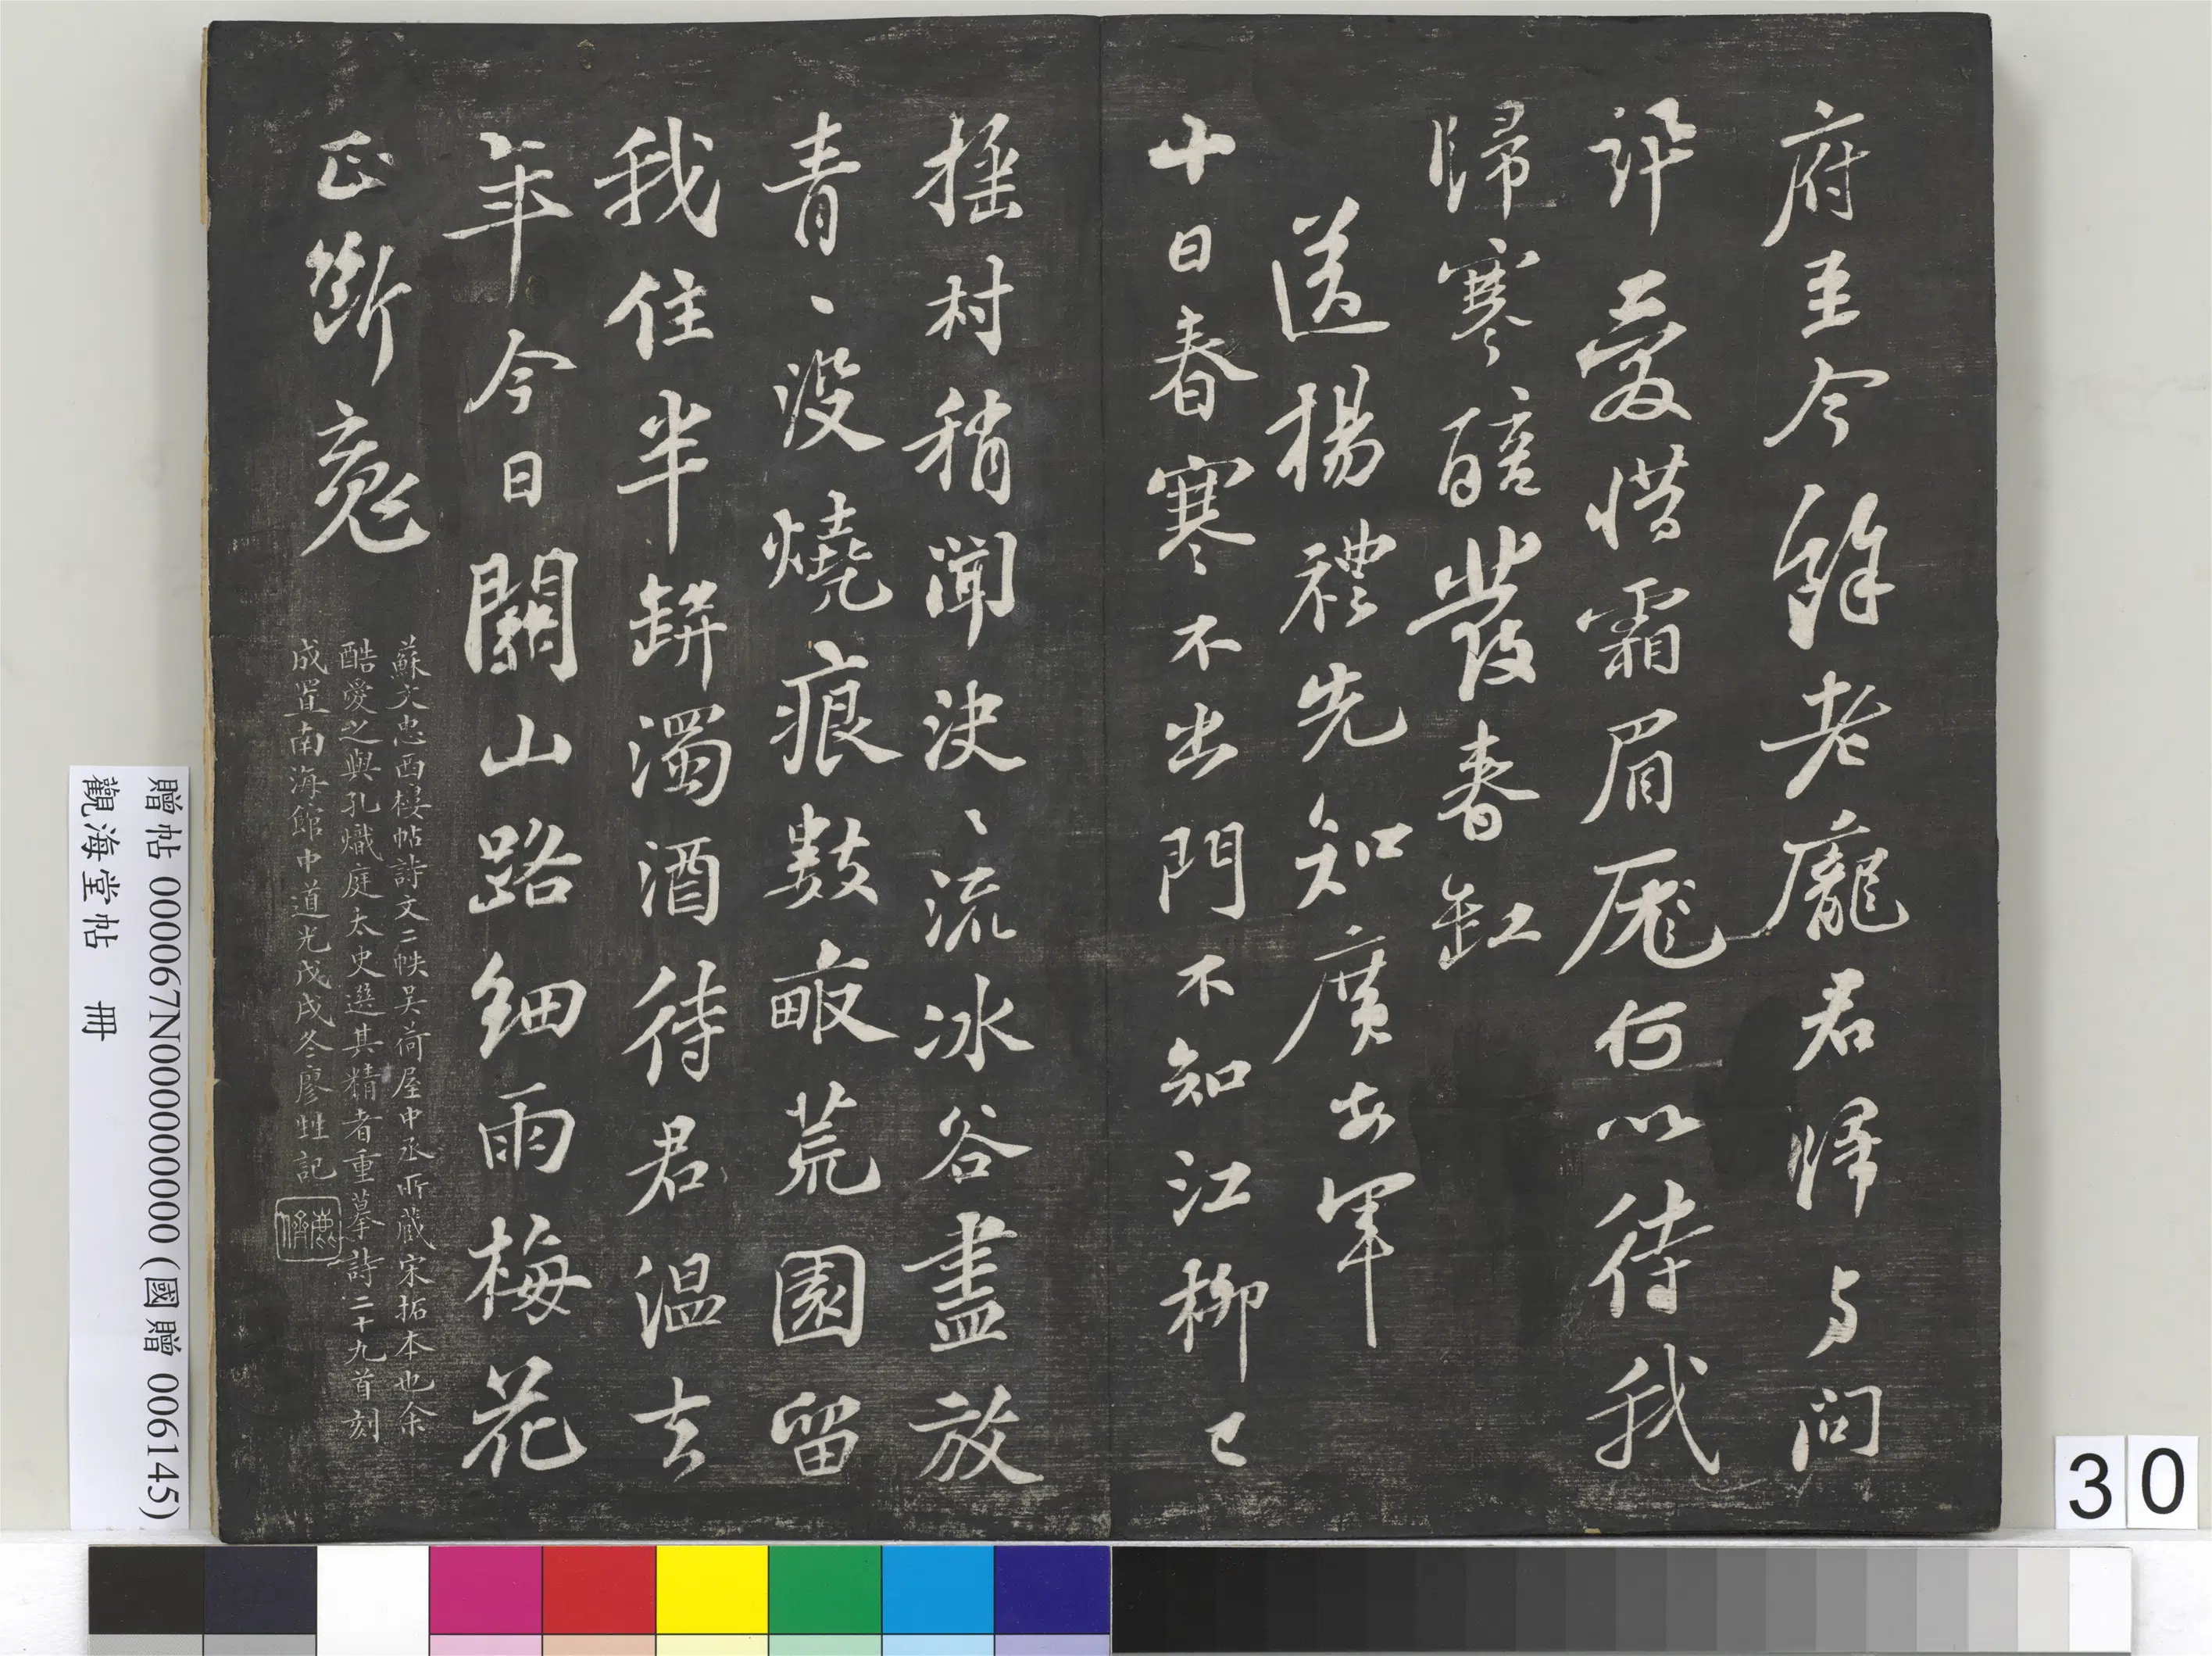 府至今餘老龐君歸与問
訊愛惜霜眉厖何以待我
歸寒醅發春缸
送楊禮先知廣安軍
十日春寒不出門不知江柳已
搖村稍聞決〻流冰谷盡放
青〻没燒痕數畝荒園留
我住半缾濁酒待君温去
年今日關山路細雨梅花
正斷䰟
蘇文忠西樓帖詩文二帙吴荷屋中丞所藏宋拓本也余
酷愛之與孔熾庭太史選其精者重摹詩二十九首刻
成置南海館中道光戊戌冬廖甡記
贈帖 000067N000000000 (國贈 006145)
觀海堂帖 冊
30